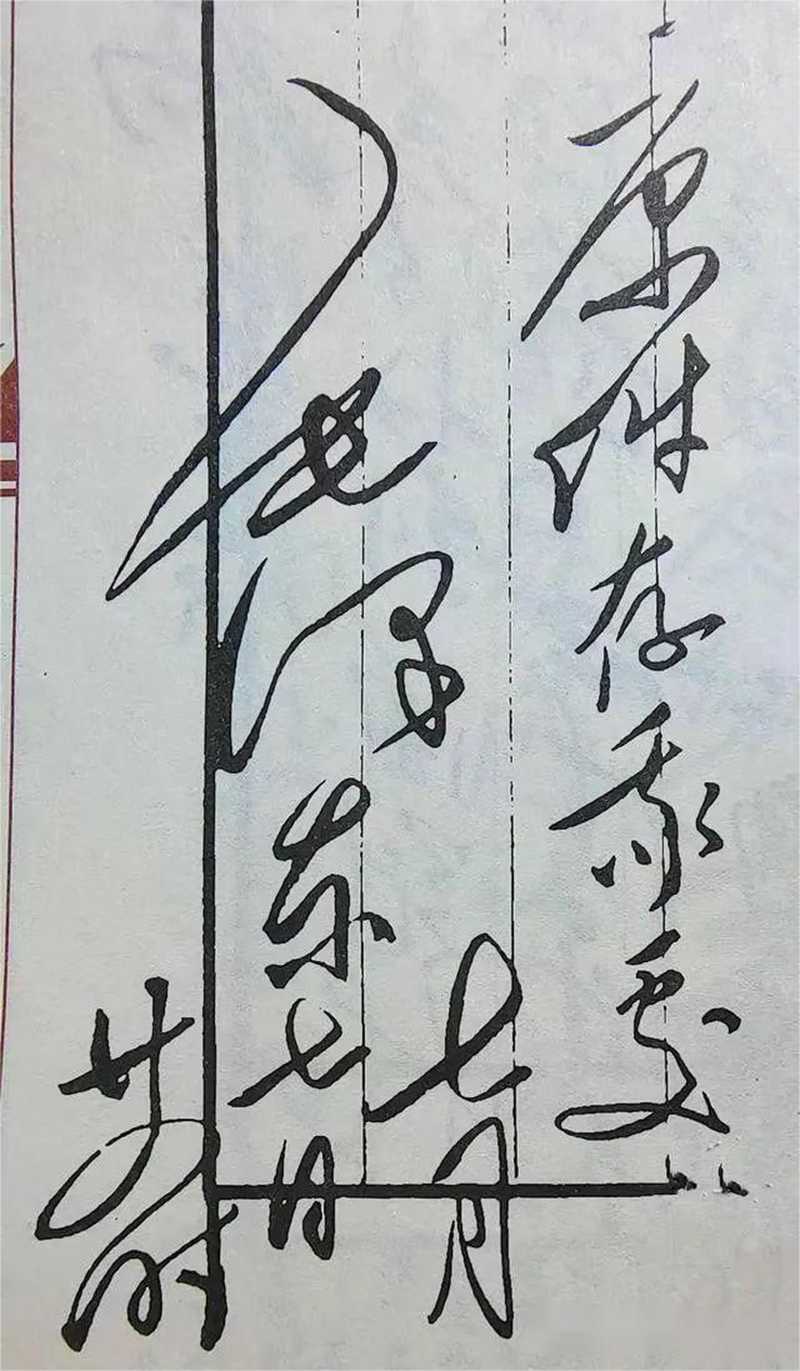 原件存我处
毛泽东
七月
七日
廿时